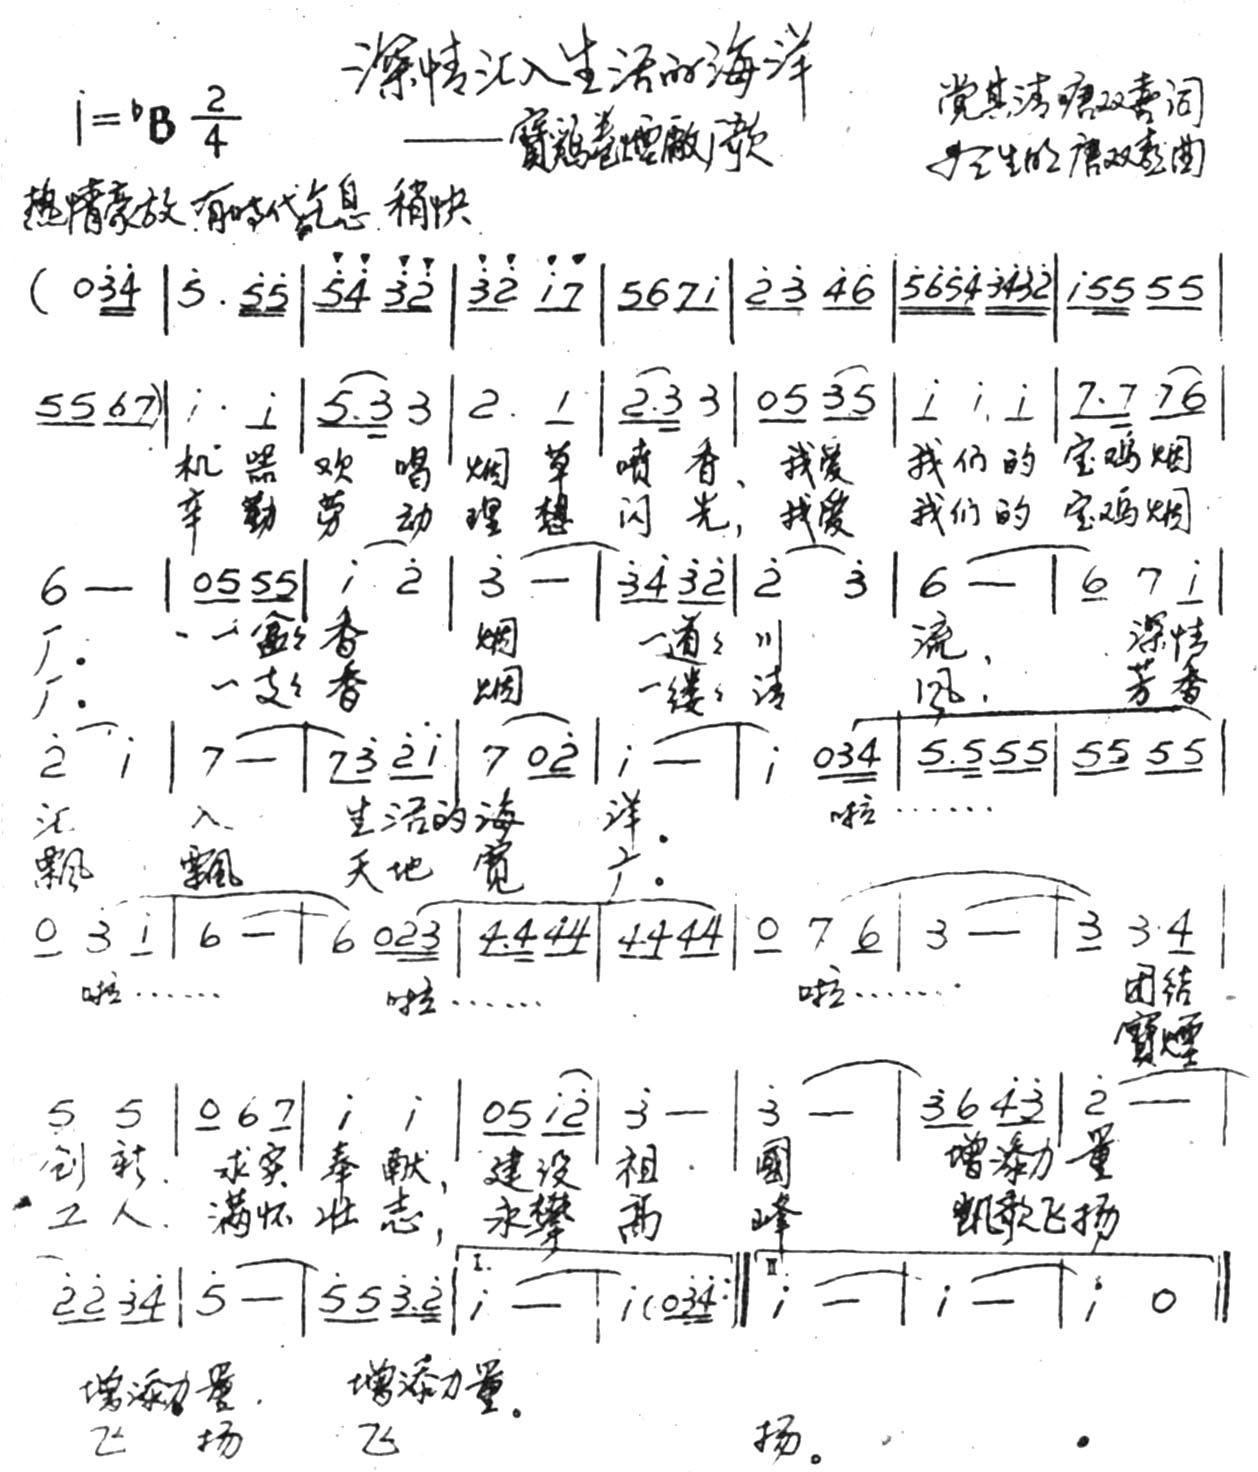 深情汇入生活的海洋
1̇=♭B 2/4
——寶鷄卷煙廠厂歌
党其清 唐双喜词
生的 唐双喜曲
热情豪放 有時代气息 稍快
( 0 3̇4̇ | 5̇ . 5̇5̇ | 5̇4̇ 3̇2̇ | 3̇2̇ 1̇7 | 567i | 2̇3̇ 4̇6̇ | 5̇6̇5̇4̇ 3̇4̇3̇2̇ | i55 55 |
55 67) | i . i | 5.3 3 | 2 . 1 | 2.3 3 | 05 35 | i i i | 7.7 76 |
机器欢唱烟草喷香、我爱我们的宝鸡烟
辛勤劳动理想闪光,我爱我们的宝鸡烟
6 — | 05 55 | i 2̇ | 3̇ — | 3̇4̇ 3̇2̇ | 2̇ 3̇ | 6 — | 6 7 i |
厂。 一盒々香烟 一道々川流, 深情
厂。 一支々香烟 一缕々清风. 芳香
2̇ i | 7 — | 73̇ 2̇i | 7 02̇ | i — | i 034 | 5.5 55 | 55 55 |
汇入生活的海洋。 啦……
飘飘天地宽广。
0 3 i | 6 — | 6 023 | 4.4 44 | 44 44 | 0 7 6 | 3 — | 3 3.4 |
啦…… 啦…… 啦…… 团结
寶煙
5 5 | 0 6 7 | i i | 05 i2̇ | 3̇ — | 3̇ — | 3̇6 4̇3̇ | 2̇ — |
创新. 求实奉献, 建设祖国 增添力量
工人. 满怀壮志, 永攀高峰 凯歌飞扬
2̇2̇ 3̇4̇ | 5̇ — | 5̇5 3̇.2̇ | I. i — | i (03̇4̇ :‖ II i — | i — | i 0 ‖
增添力量. 增添力量。
飞扬 飞 扬。